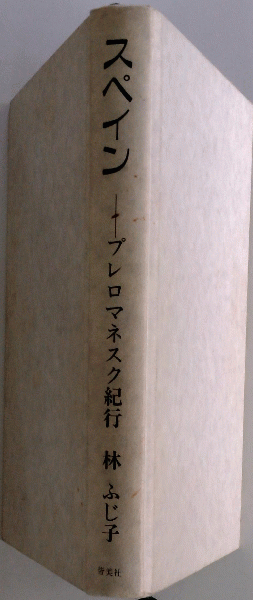 スペイン
プレロマネスク紀行
林 ふじ子